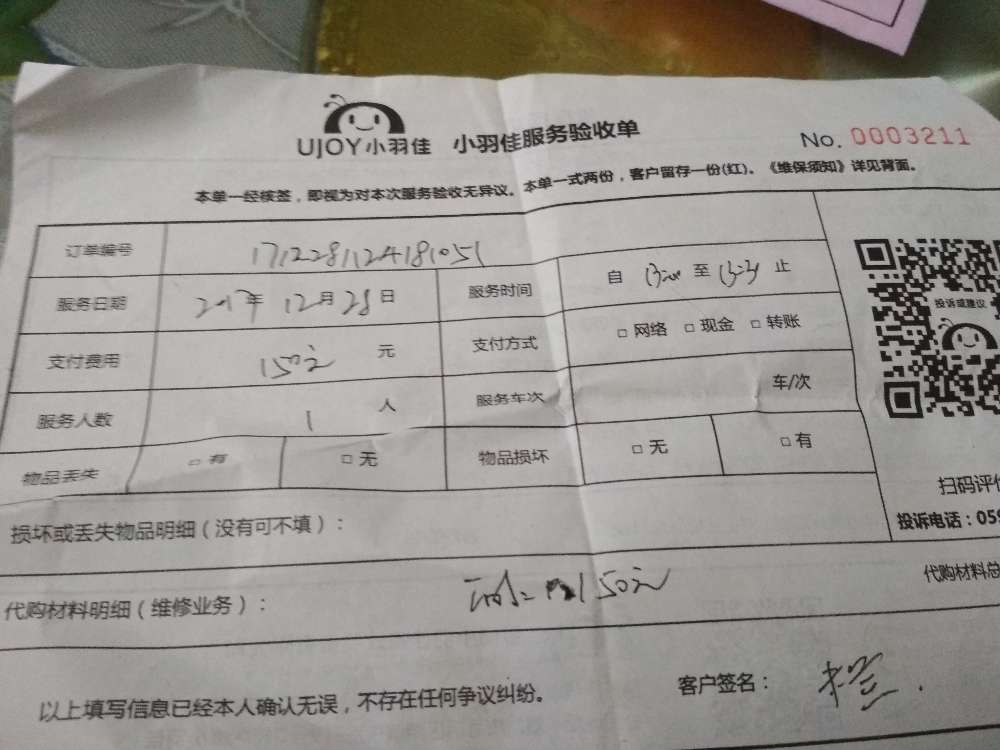 UJOY小羽佳 小羽佳服务验收单 No. 0003211
本单一经核签，即视为对本次服务验收无异议。本单一式两份，客户留存一份(红)。《维保须知》详见背面。
订单编号 1712281124181051
服务日期 2017年12月28日 服务时间 自 至 止
支付费用 150元 元 支付方式 □ 网络 □ 现金 □ 转账
服务人数 1 人 服务车次 车/次
物品丢失 □ 有 □ 无 物品损坏 □ 无 □ 有
投诉或建议
扫码评
投诉电话：059
损坏或丢失物品明细（没有可不填）：
代购材料明细（维修业务）： 150元 代购材料总
以上填写信息已经本人确认无误，不存在任何争议纠纷。 客户签名：